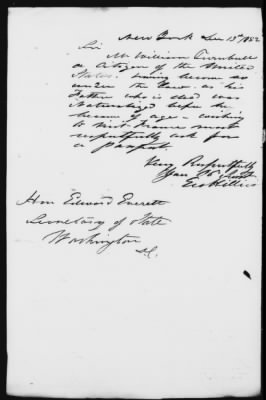 New York Dec 13th 1852
Sir
Mr William Turnbull
a Citizen of the United
States - having become so
under the Laws as his
Father who is dead was
Naturalized before he
became of age - wishing
to visit France most
respectfully ask for
a passport
Very Respectfully
Your Ob Servt
Hon Edward Everett
Secretary of State
Washington
D.C.